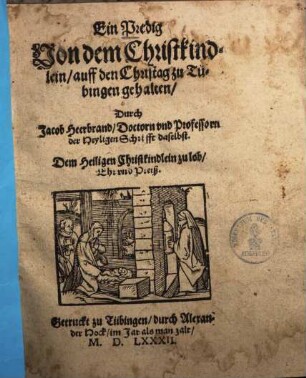 Ein Predig
Von dem Christkind-
lein/ auff den Christag zu Tü-
bingen gehalten/
Durch
Jacob Heerbrand/ Doctorn vnd Professorn
der Heyligen Schrifft daselbst.
Dem Heiligen Christkindlein zu lob/
Ehr vnd Preiß.
Getruckt zu Tübingen/ durch Alexan-
der Hock/ im Jar als man zalt/
M. D. LXXXII.